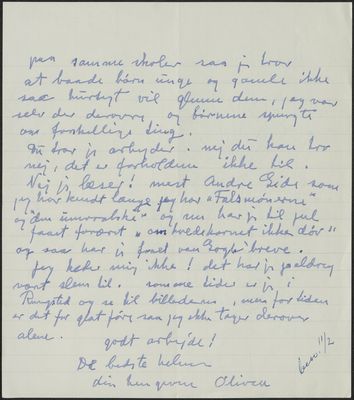 paa samme skoler saa jeg tror
at baade børn unge og gamle ikke
saa hurtigt vil glemme dem, jeg var
selv der derovre, og børnene spurgte
om forskellige ting.
Du tror jeg arbejder. nej du kan tro
nej, det er forholdene ikke til.
Nej jeg læser! mest Andre Gide som
jeg har kendt længe jeg har "Falsmøntnerne"
og "den umoralske" og nu har jeg til jul
faaet foræret "om hvedekornet ikke dør"
og saa har jeg faaet van Goghs breve.
Jeg keder mig ikke! det har jeg aldrig
været slem til. somme tider er jeg i
Ringsted og se til billederne, men for tiden
er det for glat føre saa jeg ikke tager derover
alene. godt arbejde!
De bedste hilsner
din hengivne Olivia